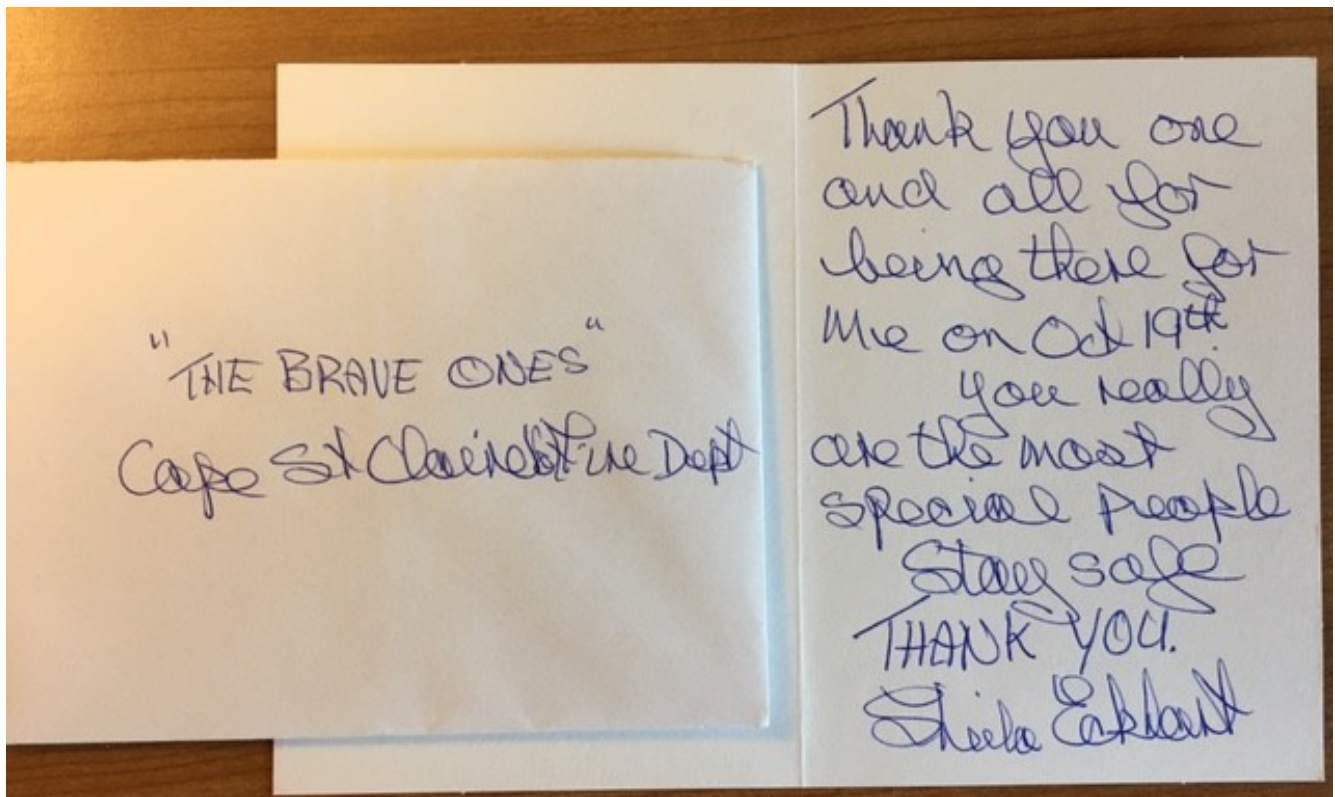 "THE BRAVE ONES"
Cape St Claire Fire Dept
Thank you one
and all for
being there for
me on Oct 19th.
you really
are the most
special people
Stay safe
THANK YOU.
Sheila Eckhart